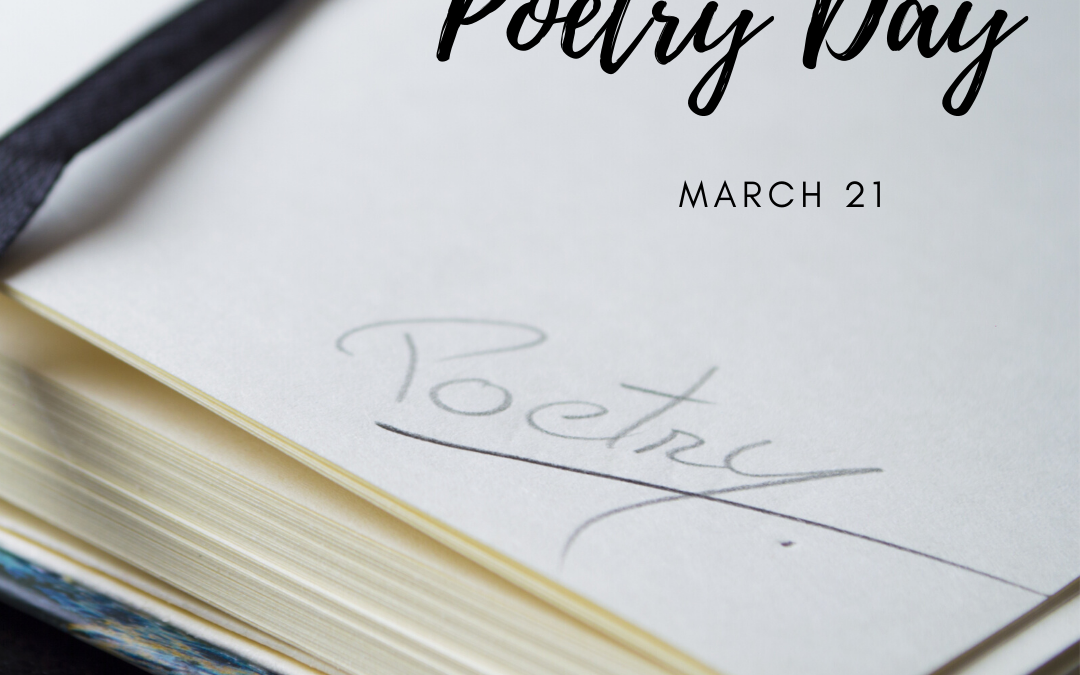 Poetry Day
MARCH 21
Poetry